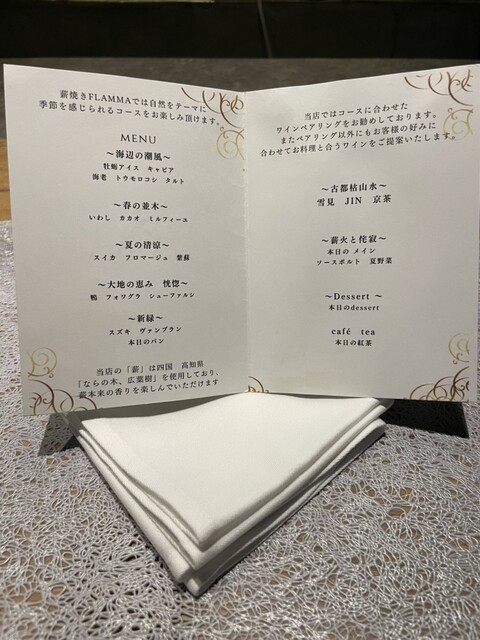 薪焼きFLAMMAでは自然をテーマに
季節を感じられるコースをお楽しみ頂けます。
MENU
～海辺の潮風～
牡蛎アイス キャビア
海老 トウモロコシ タルト
～春の並木～
いわし カカオ ミルフィーユ
～夏の清涼～
スイカ フロマージュ 紫蘇
～大地の恵み 恍惚～
鴨 フォワグラ シューファルシ
～新緑～
スズキ ヴァンブラン
本日のパン
当店の「薪」は四国 高知県
「ならの木、広葉樹」を使用しており、
薪本来の香りを楽しんでいただけます
当店ではコースに合わせた
ワインペアリングをお勧めしております。
またペアリング以外にもお客様の好みに
合わせてお料理と合うワインをご提案いたします。
～古都枯山水～
雪見 JIN 京茶
～薪火と侘寂～
本日の メイン
ソースポルト 夏野菜
～Dessert ～
本日のdessert
café tea
本日の紅茶